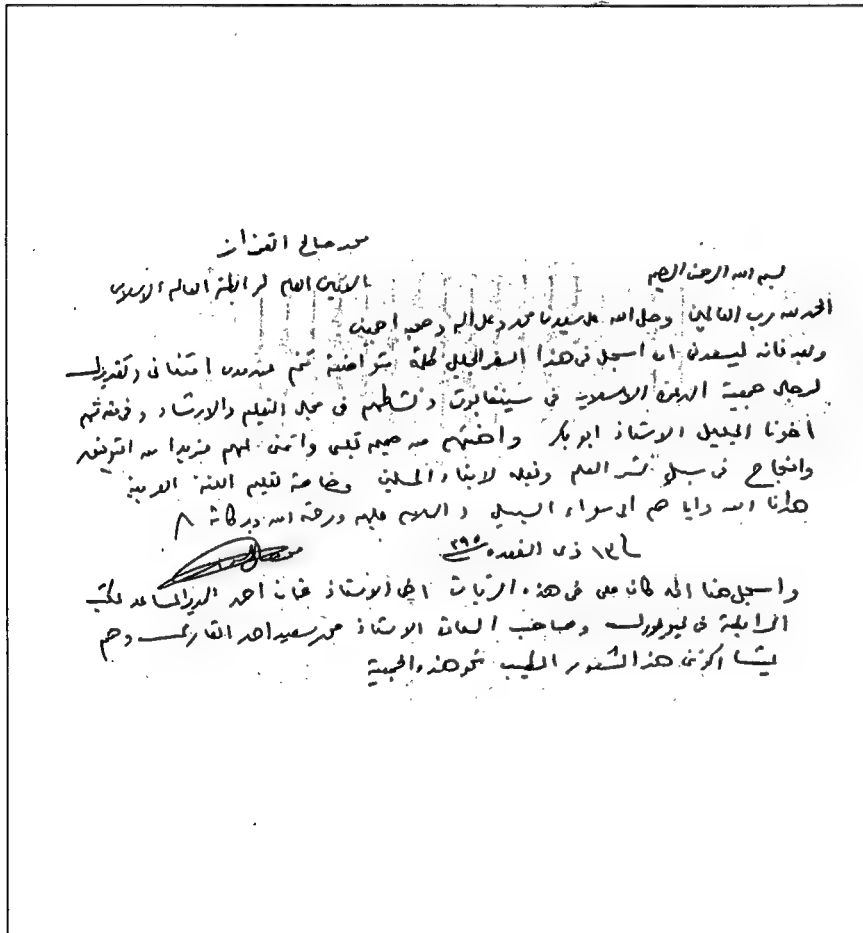 محمد صالح القزاز
الامين العام لرابطة العالم الاسلامي
بسم الله الرحمن الرحيم
الحمد لله رب العالمين وصلى الله على سيدنا محمد وعلى اله وصحبه اجمعين
وبعد فانه ليسعدني ان اسجل في هذا السفر الجليل كلمة متواضعة تنم عن مدى امتناني وتقديري
لرجال جمعية الدعوة الاسلامية في سينغابوت ونشاطهم في مجال التعليم والارشاد وفي مقدمتهم
أخونا الجليل الاستاذ ابو بكر واهنئهم من صميم قلبي واتمنى لهم مزيدا من التوفيق
والنجاح في سبيل نشر العلم وبذله لابناء المسلمين وخاصة تعليم اللغة العربية
هدانا الله واياهم الى سواء السبيل والسلام عليكم ورحمة الله وبركاته
١٣ ذي القعدة ٣٩٥
واسجل هنا انه كان معي في هذه الزيارات اخي الاستاذ احمد المدير المساعد لمكتب
الرابطة في نيويورك وصاحب السعادة الاستاذ محمد سعيد احمد وهم
يشاركونني هذا الشعور الطيب نحو هذه الجمعية